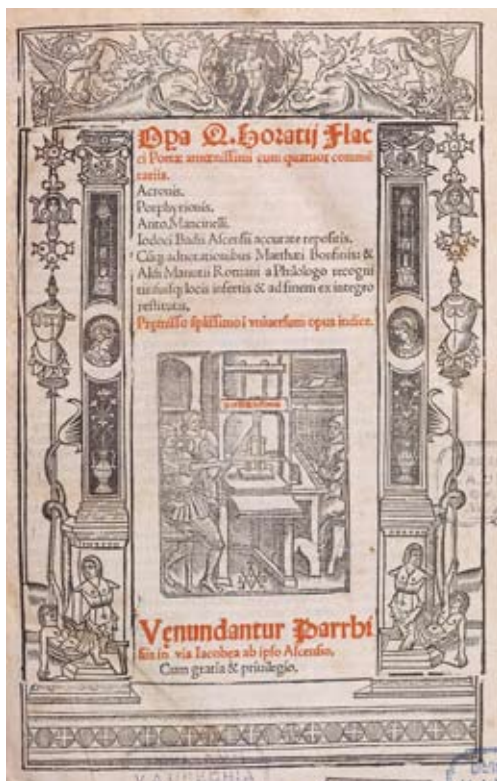 Opa Q. Horatij Flac
ci Poetæ amœnissimi cum quatuor commē
tariis.
Acronis.
Porphyrionis.
Anto. Mancinelli.
Iodoci Badii Ascensii accurate repositis.
Cūq; adnotationibus Matthæi Bonfinis: &
Aldi Manutii Romani a Philologo recogni
tis: suisq; locis insertis & ad finem ex integro
restitutis.
Præmisso āplissimo i vniuersum opus indice.
Venundantur Parrhi
siis in via Iacobea ab ipso Ascensio.
Cum gratia & priuilegio.